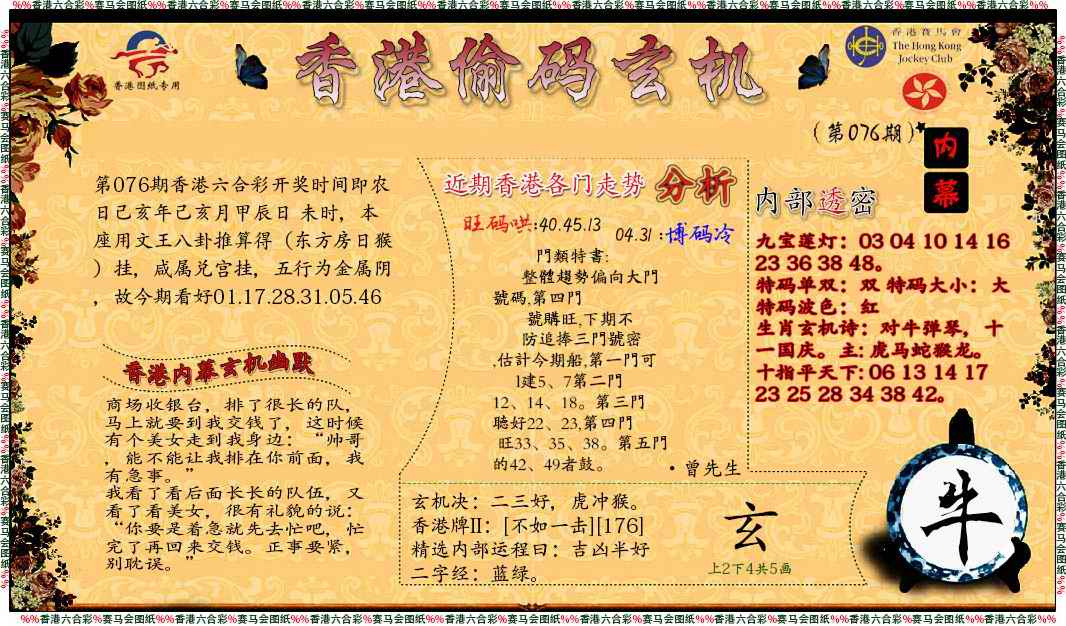 %%香港六合彩%赛马会图纸%%香港六合彩%赛马会图纸%%香港六合彩%赛马会图纸%%香港六合彩%赛马会图纸%%香港六合彩%赛马会图纸%%香港六合彩%赛马会图纸%%香港六合彩%赛马会图纸%%
香港图纸专用
香港偷码玄机
香港賽馬會
The Hong Kong
Jockey Club
(第076期)
内
幕
第076期香港六合彩开奖时间即农
日己亥年己亥月甲辰日 未时，本
座用文王八卦推算得（东方房日猴
）挂，咸属兑宫挂，五行为金属阴
，故今期看好01.17.28.31.05.46
香港内幕玄机幽默
商场收银台，排了很长的队，
马上就要到我交钱了，这时候
有个美女走到我身边：“帅哥
，能不能让我排在你前面，我
有急事。”
我看了看后面长长的队伍，又
看了看美女，很有礼貌的说：
“你要是着急就先去忙吧，忙
完了再回来交钱。正事要紧，
别耽误。”
近期香港各门走势 分析
旺码哄:40.45.13
04.31 :博码冷
門類特書:
整體趨勢偏向大門
號碼,第四門
號購旺,下期不
防追捧三門號密
,估計今期船,第一門可
1建5、7第二門
12、14、18。第三門
聽好22、23,第四門
旺33、35、38。第五門
的42、49者鼓。
·曾先生
内部透密
九宝莲灯：03 04 10 14 16
23 36 38 48。
特码单双：双 特码大小：大
特码波色：红
生肖玄机诗：对牛弹琴，十
一国庆。主: 虎马蛇猴龙。
十指平天下: 06 13 14 17
23 25 28 34 38 42。
玄机决：二三好，虎冲猴。
香港牌II：[不如一击][176]
精选内部运程曰：吉凶半好
二字经：蓝绿。
玄
上2下4共5画
牛
%%香港六合彩%赛马会图纸%%香港六合彩%赛马会图纸%%香港六合彩%赛马会图纸%%香港六合彩%赛马会图纸%%香港六合彩%赛马会图纸%%香港六合彩%赛马会图纸%%香港六合彩%赛马会图纸%%